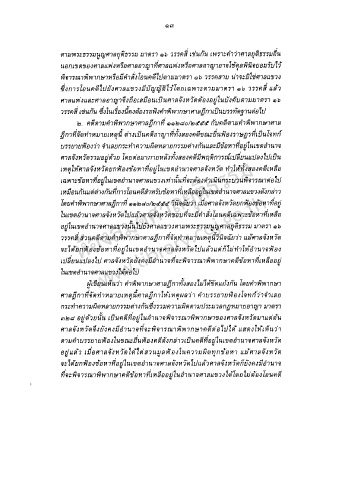 ๑๓
ตามพระธรรมนูญศาลยุติธรรม มาตรา ๑๖ วรรคสี่ เช่นกัน เพราะคำว่าศาลยุติธรรมอื่น
นอกเขตของศาลแพ่งหรือศาลอาญาที่ศาลแพ่งหรือศาลอาญาอาจใช้ดุลพินิจยอมรับไว้
พิจารณาพิพากษาหรือมีคำสั่งโอนคดีไปตามมาตรา ๑๖ วรรคสาม น่าจะมิใช่ศาลแขวง
ซึ่งการโอนคดีไปยังศาลแขวงมีบัญญัติไว้โดยเฉพาะตามมาตรา ๑๖ วรรคสี่ แล้ว
ศาลแพ่งและศาลอาญาจึงถือเหมือนเป็นศาลจังหวัดต้องอยู่ในบังคับตามมาตรา ๑๖
วรรคสี่ เช่นกัน ซึ่งในเรื่องนี้คงต้องรอฟังคำพิพากษาศาลฎีกาเป็นบรรทัดฐานต่อไป
๒. คดีตามคำพิพากษาศาลฎีกาที่ ๑๑๒๘๐/๒๕๕๕ กับคดีตามคำพิพากษาศาล
ฎีกาที่จัดทำหมายเหตุนี้ ต่างเป็นคดีอาญาที่ทั้งสองคดีขณะยื่นฟ้องราษฎรที่เป็นโจทก์
บรรยายฟ้องว่า จำเลยกระทำความผิดหลายกรรมต่างกันและมีข้อหาที่อยู่ในเขตอำนาจ
ศาลจังหวัดรวมอยู่ด้วย โดยต่อมาภายหลังทั้งสองคดีมีพฤติการณ์เปลี่ยนแปลงไปเป็น
เหตุให้ศาลจังหวัดยกฟ้องข้อหาที่อยู่ในเขตอำนาจศาลจังหวัด ทำให้ทั้งสองคดีเหลือ
เฉพาะข้อหาที่อยู่ในเขตอำนาจศาลแขวงเท่านั้นที่จะต้องดำเนินกระบวนพิจารณาต่อไป
เหมือนกันแต่ต่างกันที่การโอนคดีสำหรับข้อหาที่เหลืออยู่ในเขตอำนาจศาลแขวงดังกล่าว
โดยคำพิพากษาศาลฎีกาที่ ๑๑๒๘๐/๒๕๕๕ วินิจฉัยว่า เมื่อศาลจังหวัดยกฟ้องข้อหาที่อยู่
ในเขตอำนาจศาลจังหวัดไปแล้วศาลจังหวัดชอบที่จะมีคำสั่งโอนคดีเฉพาะข้อหาที่เหลือ
อยู่ในเขตอำนาจศาลแขวงนั้นไปยังศาลแขวงตามพระธรรมนูญศาลยุติธรรม มาตรา ๑๖
วรรคสี่ ส่วนคดีตามคำพิพากษาศาลฎีกาที่จัดทำหมายเหตุนี้วินิจฉัยว่า แม้ศาลจังหวัด
จะได้ยกฟ้องข้อหาที่อยู่ในเขตอำนาจศาลจังหวัดไปแล้วแต่ก็ไม่ทำให้อำนาจฟ้อง
เปลี่ยนแปลงไป ศาลจังหวัดยังคงมีอำนาจที่จะพิจารณาพิพากษาคดีข้อหาที่เหลืออยู่
ในเขตอำนาจศาลแขวงได้ต่อไป
ผู้เขียนเห็นว่า คำพิพากษาศาลฎีกาทั้งสองไม่ได้ขัดแย้งกัน โดยคำพิพากษา
ศาลฎีกาที่จัดทำหมายเหตุนี้ศาลฎีกาให้เหตุผลว่า คำบรรยายฟ้องโจทก์ว่าจำเลย
กระทำความผิดหลายกรรมต่างกันซึ่งรวมความผิดตามประมวลกฎหมายอาญา มาตรา
๓๒๘ อยู่ด้วยนั้น เป็นคดีที่อยู่ในอำนาจพิจารณาพิพากษาของศาลจังหวัดมาแต่ต้น
ศาลจังหวัดจึงยังคงมีอำนาจที่จะพิจารณาพิพากษาคดีต่อไปได้ แสดงให้เห็นว่า
ตามคำบรรยายฟ้องในขณะยื่นฟ้องคดีดังกล่าวเป็นคดีที่อยู่ในเขตอำนาจศาลจังหวัด
อยู่แล้ว เมื่อศาลจังหวัดได้ไต่สวนมูลฟ้องในความผิดทุกข้อหา แม้ศาลจังหวัด
จะได้ยกฟ้องข้อหาที่อยู่ในเขตอำนาจศาลจังหวัดไปแล้วศาลจังหวัดก็ยังคงมีอำนาจ
ที่จะพิจารณาพิพากษาคดีข้อหาที่เหลืออยู่ในเขตอำนาจศาลแขวงได้โดยไม่ต้องโอนคดี